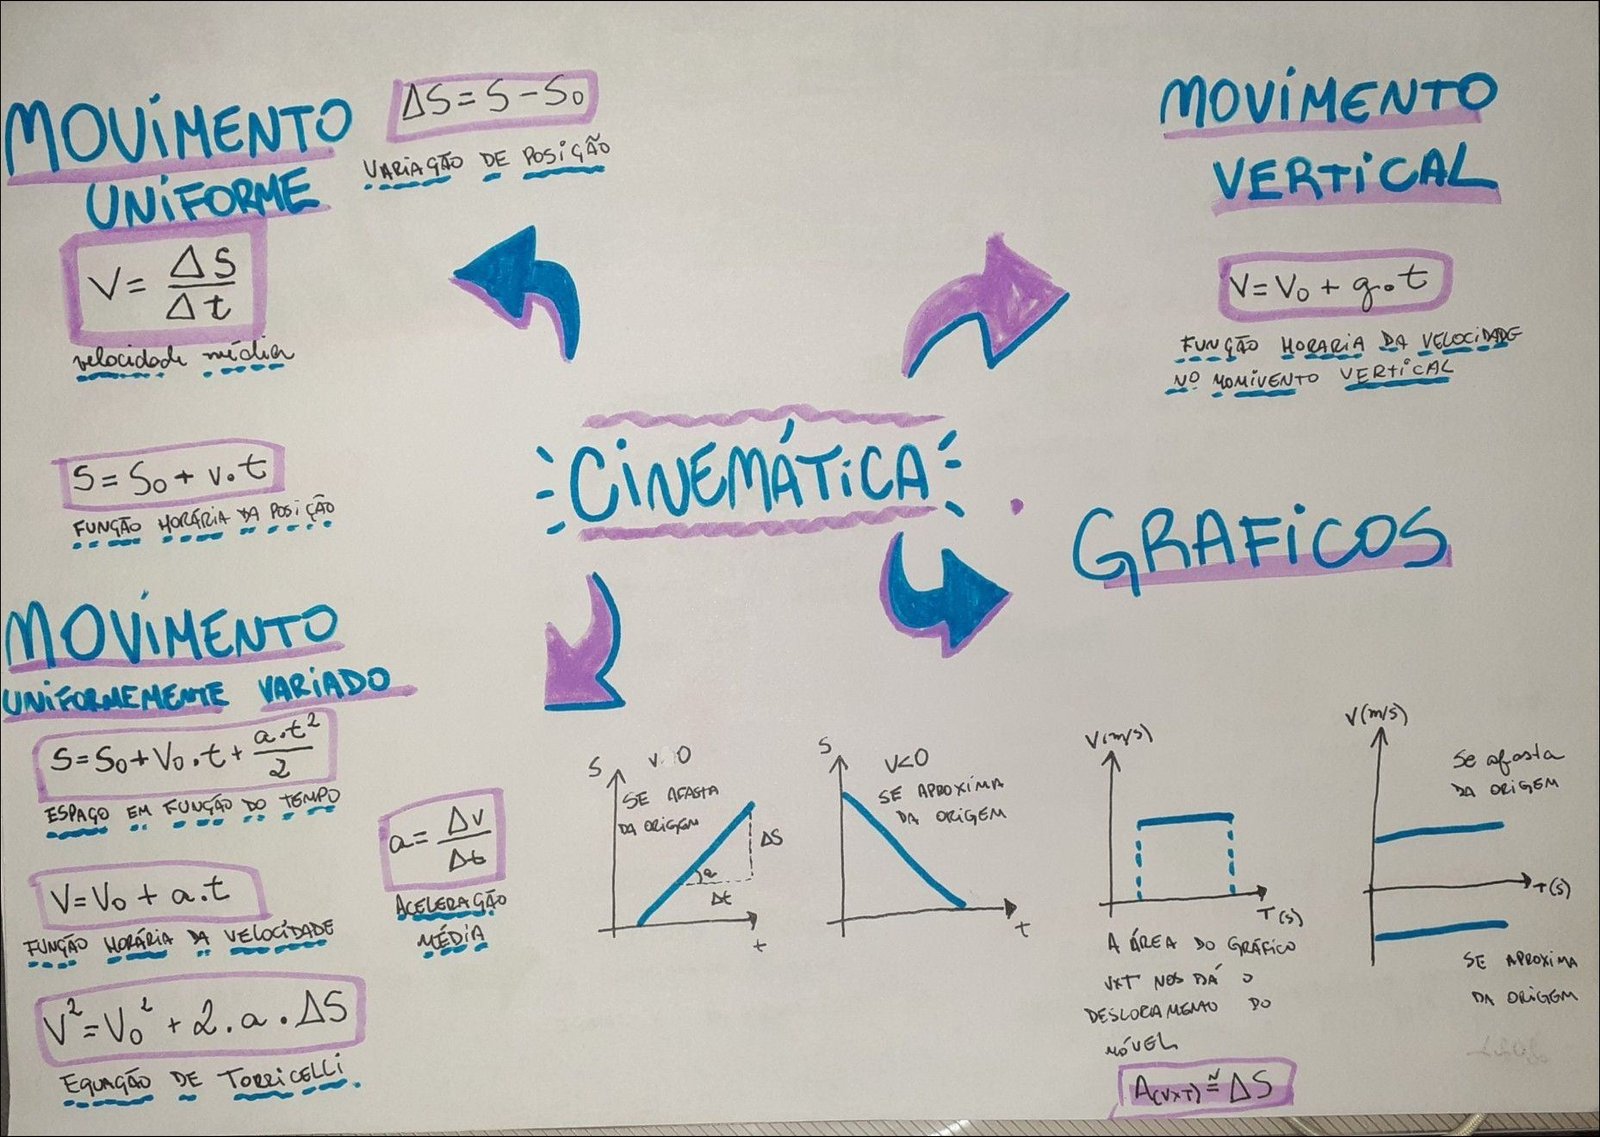 MOVIMENTO
UNIFORME
ΔS = S - S₀
VARIAÇÃO DE POSIÇÃO
V = ΔS/Δt
velocidade média
S = S₀ + v.t
FUNÇÃO HORÁRIA DA POSIÇÃO
MOVIMENTO
VERTICAL
V = V₀ + g.t
FUNÇÃO HORARIA DA VELOCIDADE
NO MOMIVENTO VERTICAL
CINEMÁTICA
MOVIMENTO
UNIFORMEMENTE VARIADO
S = S₀ + V₀.t + a.t²/2
ESPAÇO EM FUNÇÃO DO TEMPO
V = V₀ + a.t
FUNÇÃO HORÁRIA DA VELOCIDADE
V² = V₀² + 2.a.ΔS
EQUAÇÃO DE TORRICELLI
a = Δv/Δt
ACELERAÇÃO
MÉDIA
GRAFICOS
S
V 0
SE AFASTA
DA ORIGEM
ΔS
Δt
t
S
V<0
SE APROXIMA
DA ORIGEM
t
V(m/s)
T(s)
A ÁREA DO GRÁFICO
VxT NOS DÁ O
DESLOCAMENTO DO
MÓVEL
A(VxT) ≅ ΔS
V(m/s)
Se afasta
DA ORIGEM
T(s)
SE APROXIMA
DA ORIGEM